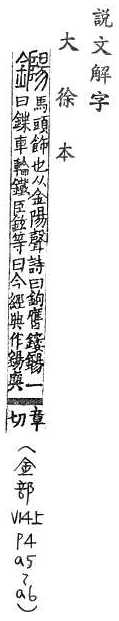 說文解字
大徐本
鐊馬頭飾也从金陽聲詩曰鉤膺鏤鐊一
曰鍱車輪鐵臣鉉等曰今經典作鍚與
章
切
(金部
V14上
P4
a5
~
a6)